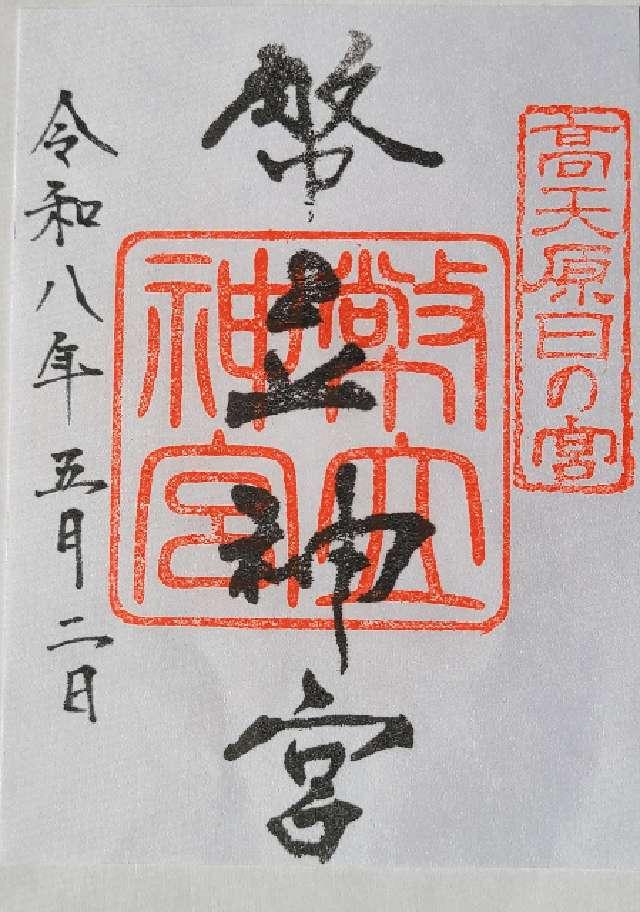 高天原日の宮
幣立神宮
幣立
神宮
令和八年五月二日